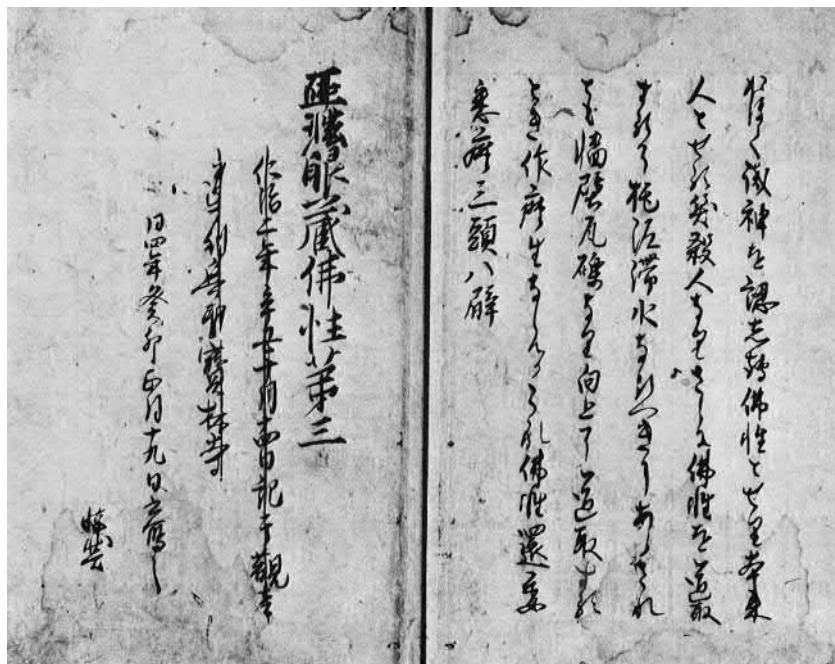 おほく識神を認して佛性とせり本来
人とせる笑殺人なりさらに佛性を道取
するに拕泥滞水なるへきにあらされ
とも牆壁瓦礫なり向上に道取する
とき作麼生ならんかこれ佛性還委
悉麼三頭八臂
正法眼蔵佛性第三
仁治二年辛丑十月十四日記于觀音
導利興聖寶林寺
同四年癸卯正月十九日書寫之
懐奘